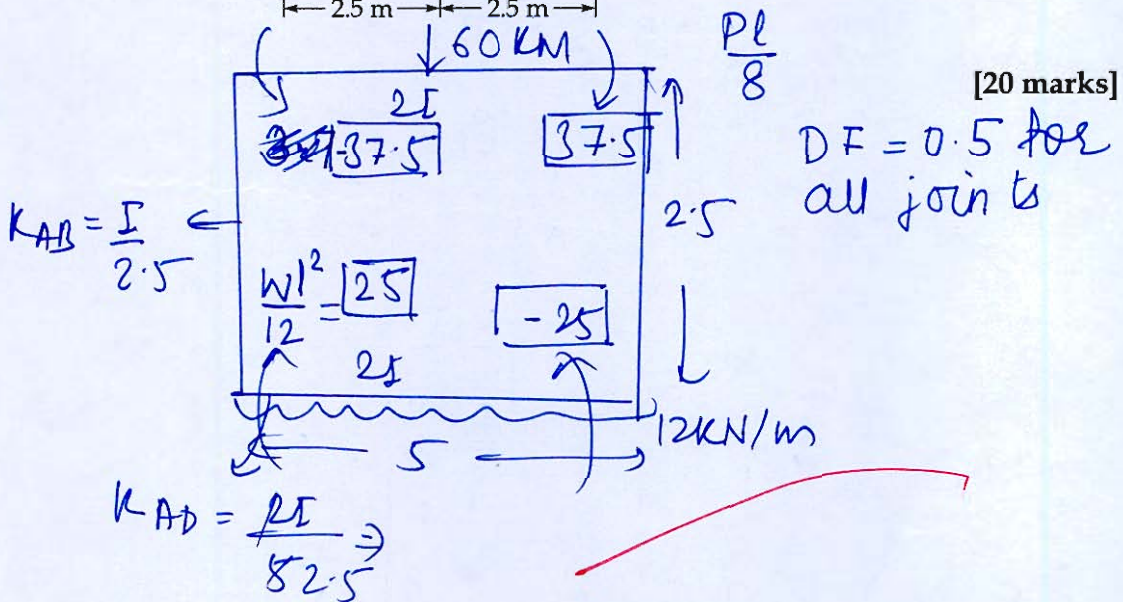 2.5 m 2.5 m
60 KM
Pl
8
[20 marks]
2I
-37.5 37.5
DF = 0.5 for
all joints
KAB = I
2.5
2.5
Wl² = 25
12
-25
2I
12KN/m
5
KAD = 2I ⇒
5 2.5